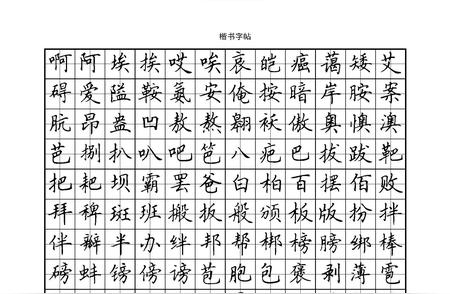 楷书字帖
啊阿埃挨哎唉哀皑癌蔼矮艾
碍爱隘鞍氨安俺按暗岸胺案
肮昂盎凹敖熬翱袄傲奥懊澳
芭捌扒叭吧笆八疤巴拔跋靶
把耙坝霸罢爸白柏百摆佰败
拜稗斑班搬扳般颁板版扮拌
伴瓣半办绊邦帮梆榜膀绑棒
磅蚌镑傍谤苞胞包褒剥薄雹